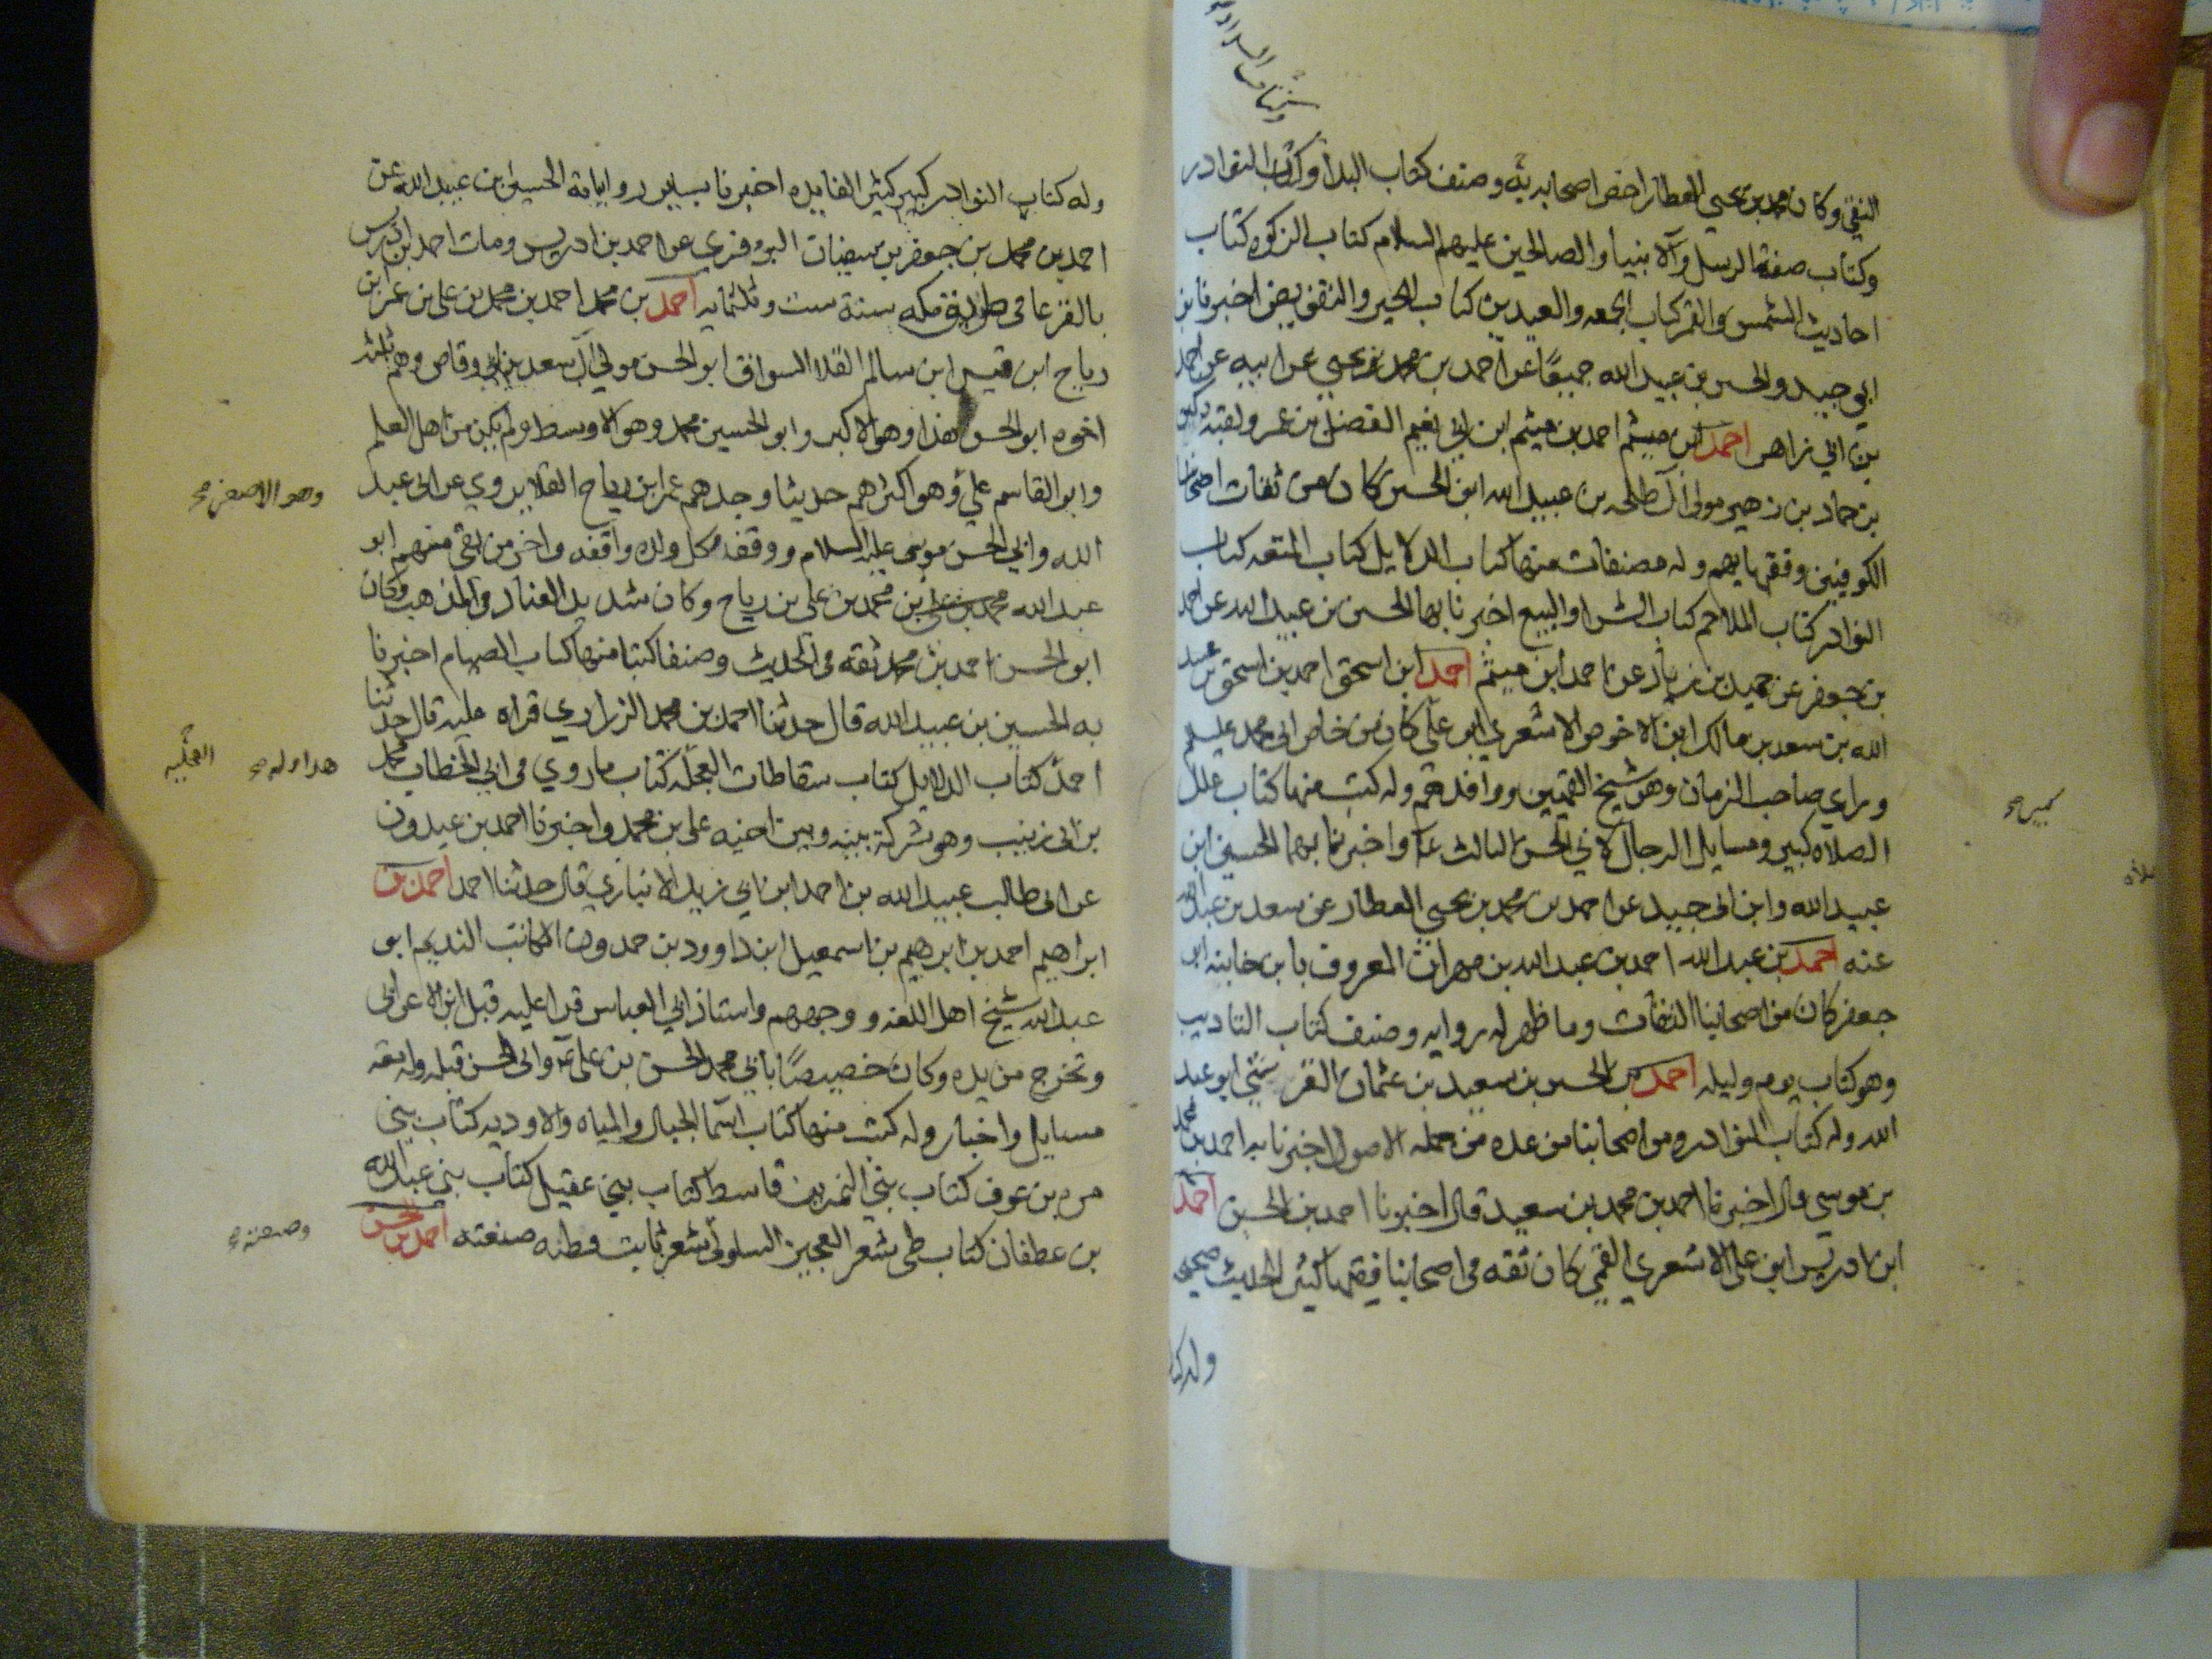 النقي وكان محمد بن يحيى العطار اخص اصحابه به وصنف كتاب البداء وكتاب النوادر
وكتاب صفة الرسل والانبياء والصالحين عليهم السلام كتاب الزكوه كتاب
احاديث الشمس والقمر كتاب الجمعه والعيدين كتاب الجبر والتفويض اخبرنا ابن
ابي جيد والحسين بن عبيد الله جميعًا عن احمد بن محمد بن يحيى عن ابيه عن احمد
بن ابي زاهر احمد ابن ميثم احمد بن ميثم ابن ابي نعيم الفضل بن عمر ولقبه دكين
بن حماد بن زهير مولى آل طلحه بن عبيد الله ابو الحسين كان من ثقات اصحابنا
الكوفيين وفقهايهم وله مصنفات منها كتاب الدلايل كتاب المتعه كتاب
النوادر كتاب الملاحم كتاب الشرا والبيع اخبرنا بها الحسين بن عبيد الله عن احمد
بن جعفر عن حميد بن زياد عن احمد ابن ميثم احمد ابن اسحق احمد بن اسحق بن عبد
الله بن سعد بن مالك ابن الاخوص الاشعري ابو علي كان من خاص ابي محمد عليه السلم
وراي صاحب الزمان وهو شيخ القميين ووافدهم وله كتب منها كتاب علل
الصلاه كبير ومسايل الرجال لابي الحسن الثالث عم واخبرنا بهما الحسين ابن
عبيد الله وابن ابي جيد عن احمد بن محمد بن يحيى العطار عن سعد بن عبد الله
عنه احمد بن عبد الله احمد بن عبد الله بن مهران المعروف بابن خانبه ابو
جعفر كان من اصحابنا الثقات وما ظهر له روايه وصنف كتاب التاديب
وهو كتاب يوم وليله احمد بن الحسين بن سعيد بن عثمان القرشي ابو عبد
الله وله كتاب النوادر ومن اصحابنا من عده من جمله الاصول اخبرنا به احمد بن محمد
بن موسى قال اخبرنا احمد بن محمد بن سعيد قال اخبرنا احمد بن الحسين احمد
ابن ادريس ابو علي الاشعري القمي كان ثقه في اصحابنا فقيها كثير الحديث صحيحه
وله كتاب
كبير صح
وله كتاب النوادر كبير كثير الفايده اخبرنا بساير رواياته الحسين بن عبيد الله عن
احمد بن محمد بن جعفر بن سفيان البزوفري عن احمد بن ادريس ومات احمد بن ادريس
بالقرعا في طريق مكه سنة ست وثلثمايه احمد بن محمد احمد بن محمد بن علي بن عمر ابن
رباح ابن قيس ابن سالم القلا السواق ابو الحسن مولى آل سعد بن ابي وقاص وهم ثلثه
اخوه ابو الحسن هذا وهو الاكبر وابو الحسين محمد وهو الاوسط ولم يكن من اهل العلم
وابو القاسم علي وهو اكثرهم حديثا وجدهم عمر ابن رباح القلا يروي عن ابي عبد
وهو الاصغر صح
الله وابي الحسن موسى عليه السلام ووقف وكل ولده واقفه واخر من بقي منهم ابو
عبد الله محمد بن علي بن محمد بن علي بن رباح وكان شديد العناد في المذهب وكان
ابو الحسن احمد بن محمد ثقه في الحديث وصنف كتبا منها كتاب الصيام اخبرنا
به الحسين بن عبيد الله قال حدثنا احمد بن محمد الزراري قراه عليه قال حدثنا
احمد كتاب الدلايل كتاب سقاطات العجليه كتاب ما روي في ابي الخطاب محمد
العجليه
بن ابي زينب وهو شركة بينه وبين اخيه علي بن محمد واخبرنا احمد بن عبدون
عن ابي طالب عبيد الله بن احمد ابن ابي زيد الانباري قال حدثنا احمد احمد بن
ابراهيم احمد بن ابرهيم بن اسمعيل ابن داوود بن حمدون الكاتب النديم ابو
عبد الله شيخ اهل اللغه ووجههم واستاذ ابي العباس قرا عليه قبل ابن الاعرابي
وتخرج من يده وكان خصيصًا بابي محمد الحسن بن علي عم وابي الحسن قبله وله معه
مسايل واخبار وله كتب منها كتاب اسما الجبال والمياه والاوديه كتاب بني
مره بن عوف كتاب بني النمر بن قاسط كتاب بني عقيل كتاب بني عبد الله
بن عطفان كتاب طي شعر العجير السلولي شعر ثابت قطنه صنعته احمد بن الحسن
وصنعته صح